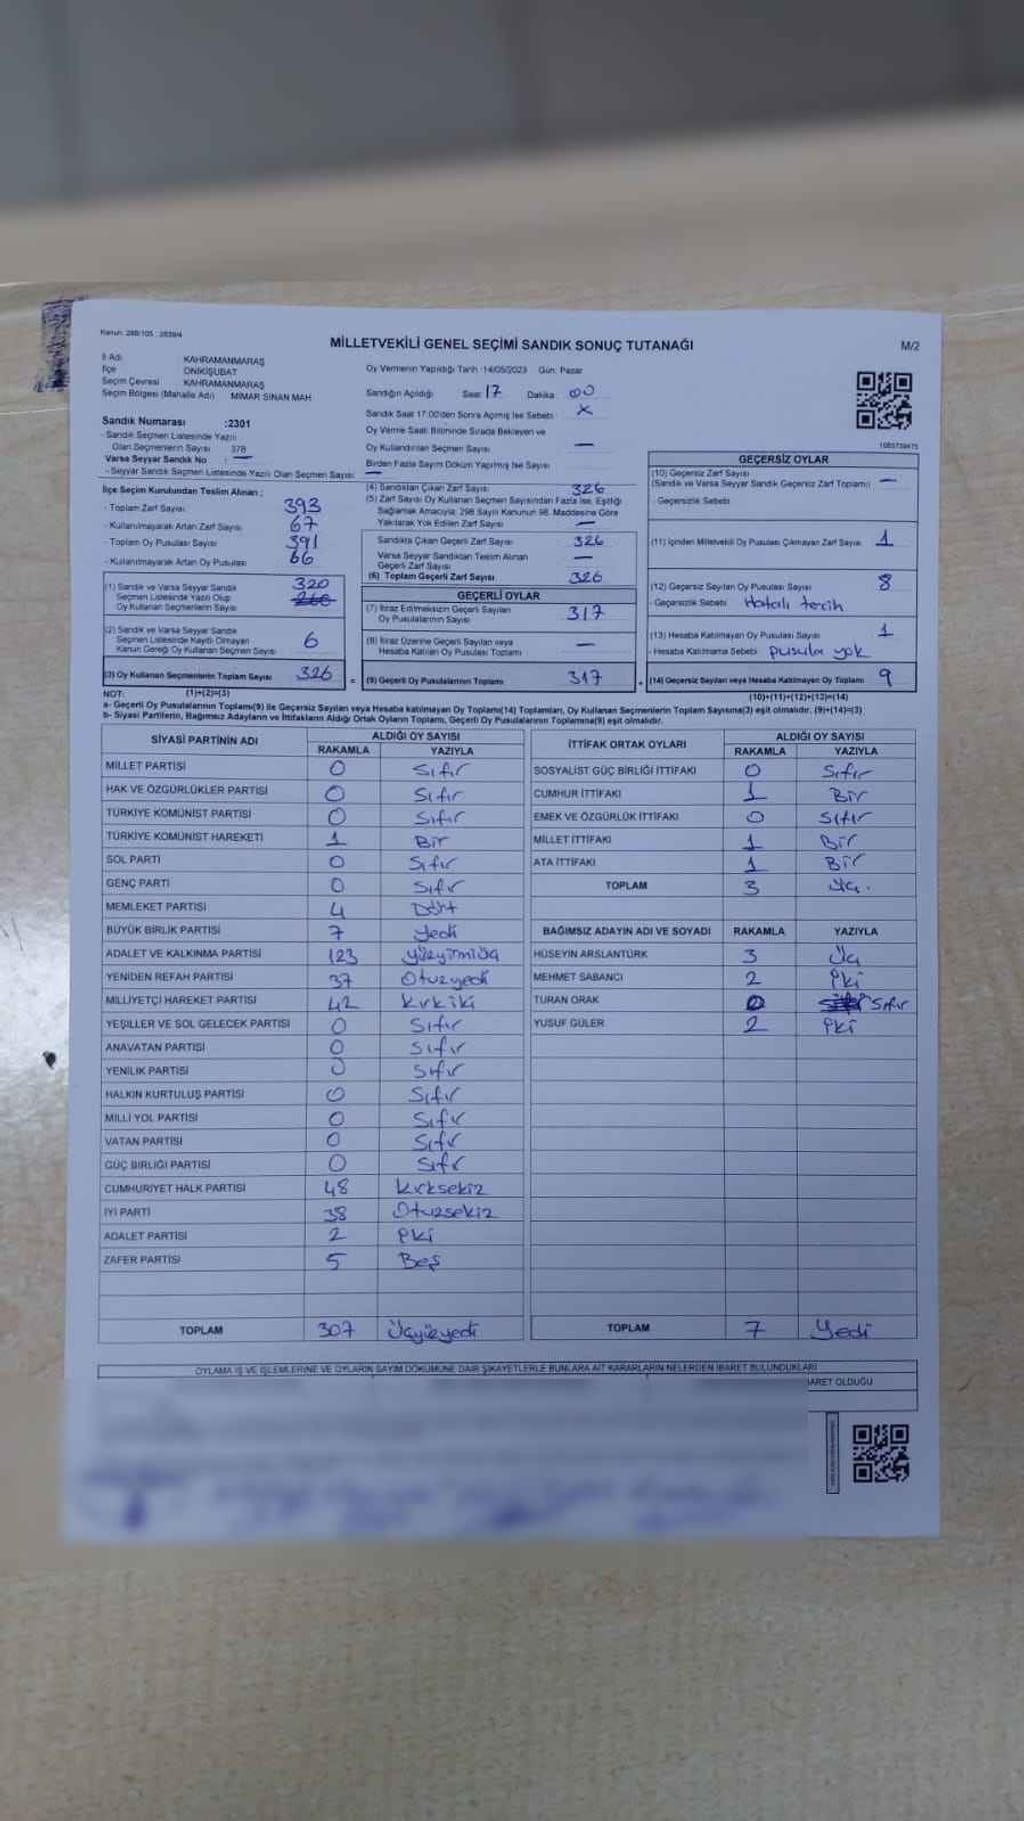 Kanun: 298/105 : 2839/4
MİLLETVEKİLİ GENEL SEÇİMİ SANDIK SONUÇ TUTANAĞI
M/2
İl Adı KAHRAMANMARAŞ
İlçe ONİKİŞUBAT
Seçim Çevresi KAHRAMANMARAŞ
Seçim Bölgesi (Mahalle Adı) MİMAR SİNAN MAH
Oy Vermenin Yapıldığı Tarih :14/05/2023 Gün: Pazar
Sandığın Açıldığı Saat 17 Dakika 00
Sandık Saat 17:00'den Sonra Açılmış İse Sebebi X
Oy Verme Saati Bitiminde Sırada Bekleyen ve
Oy Kullandırılan Seçmen Sayısı —
Birden Fazla Sayım Döküm Yapılmış İse Sayısı
Sandık Numarası :2301
- Sandık Seçmen Listesinde Yazılı
Olan Seçmenlerin Sayısı 378
Varsa Seyyar Sandık No : —
- Seyyar Sandık Seçmen Listesinde Yazılı Olan Seçmen Sayısı —
İlçe Seçim Kurulundan Teslim Alınan ;
- Toplam Zarf Sayısı 393
- Kullanılmayarak Artan Zarf Sayısı 67
- Toplam Oy Pusulası Sayısı 391
- Kullanılmayarak Artan Oy Pusulası 66
(1) Sandık ve Varsa Seyyar Sandık
Seçmen Listesinde Yazılı Olup
Oy Kullanan Seçmenlerin Sayısı 320
(2) Sandık ve Varsa Seyyar Sandık
Seçmen Listesinde Kayıtlı Olmayan
Kanun Gereği Oy Kullanan Seçmen Sayısı 6
(3) Oy Kullanan Seçmenlerin Toplam Sayısı 326
(4) Sandıktan Çıkan Zarf Sayısı 326
(5) Zarf Sayısı Oy Kullanan Seçmen Sayısından Fazla İse, Eşitliği
Sağlamak Amacıyla, 298 Sayılı Kanunun 98. Maddesine Göre
Yakılarak Yok Edilen Zarf Sayısı —
Sandıkta Çıkan Geçerli Zarf Sayısı 326
Varsa Seyyar Sandıktan Teslim Alınan
Geçerli Zarf Sayısı —
(6) Toplam Geçerli Zarf Sayısı 326
GEÇERLİ OYLAR
(7) İtiraz Edilmeksizin Geçerli Sayılan
Oy Pusulalarının Sayısı 317
(8) İtiraz Üzerine Geçerli Sayılan veya
Hesaba Katılan Oy Pusulası Toplamı —
= (9) Geçerli Oy Pusulalarının Toplamı 317
GEÇERSİZ OYLAR
(10) Geçersiz Zarf Sayısı
(Sandık ve Varsa Seyyar Sandık Geçersiz Zarf Toplamı) —
- Geçersizlik Sebebi
(11) İçinden Milletvekili Oy Pusulası Çıkmayan Zarf Sayısı 1
(12) Geçersiz Sayılan Oy Pusulası Sayısı 8
- Geçersizlik Sebebi Hatalı tercih
(13) Hesaba Katılmayan Oy Pusulası Sayısı 1
- Hesaba Katılmama Sebebi pusula yok
+ (14) Geçersiz Sayılan veya Hesaba Katılmayan Oy Toplamı 9
NOT: (1)+(2)=(3) (10)+(11)+(12)+(13)=(14)
a- Geçerli Oy Pusulalarının Toplamı(9) ile Geçersiz Sayılan veya Hesaba katılmayan Oy Toplamı(14) Toplamları, Oy Kullanan Seçmenlerin Toplam Sayısına(3) eşit olmalıdır. (9)+(14)=(3)
b- Siyasi Partilerin, Bağımsız Adayların ve İttifakların Aldığı Ortak Oyların Toplamı, Geçerli Oy Pusulalarının Toplamına(9) eşit olmalıdır.
SİYASİ PARTİNİN ADI ALDIĞI OY SAYISI
RAKAMLA YAZIYLA
MİLLET PARTİSİ 0 Sıfır
HAK VE ÖZGÜRLÜKLER PARTİSİ 0 Sıfır
TÜRKİYE KOMÜNİST PARTİSİ 0 Sıfır
TÜRKİYE KOMÜNİST HAREKETİ 1 Bir
SOL PARTİ 0 Sıfır
GENÇ PARTİ 0 Sıfır
MEMLEKET PARTİSİ 4 Dört
BÜYÜK BİRLİK PARTİSİ 7 Yedi
ADALET VE KALKINMA PARTİSİ 123 Yüzyirmiüç
YENİDEN REFAH PARTİSİ 37 Otuzyedi
MİLLİYETÇİ HAREKET PARTİSİ 42 Kırkiki
YEŞİLLER VE SOL GELECEK PARTİSİ 0 Sıfır
ANAVATAN PARTİSİ 0 Sıfır
YENİLİK PARTİSİ 0 Sıfır
HALKIN KURTULUŞ PARTİSİ 0 Sıfır
MİLLİ YOL PARTİSİ 0 Sıfır
VATAN PARTİSİ 0 Sıfır
GÜÇ BİRLİĞİ PARTİSİ 0 Sıfır
CUMHURİYET HALK PARTİSİ 48 Kırksekiz
İYİ PARTİ 38 Otuzsekiz
ADALET PARTİSİ 2 İki
ZAFER PARTİSİ 5 Beş
TOPLAM 307 Üçyüzyedi
İTTİFAK ORTAK OYLARI ALDIĞI OY SAYISI
RAKAMLA YAZIYLA
SOSYALİST GÜÇ BİRLİĞİ İTTİFAKI 0 Sıfır
CUMHUR İTTİFAKI 1 Bir
EMEK VE ÖZGÜRLÜK İTTİFAKI 0 Sıfır
MİLLET İTTİFAKI 1 Bir
ATA İTTİFAKI 1 Bir
TOPLAM 3 Üç.
BAĞIMSIZ ADAYIN ADI VE SOYADI RAKAMLA YAZIYLA
HÜSEYİN ARSLANTÜRK 3 Üç
MEHMET SABANCI 2 İki
TURAN ORAK 0 Sıfır
YUSUF GÜLER 2 İki
TOPLAM 7 Yedi
OYLAMA İŞ VE İŞLEMLERİNE VE OYLARIN SAYIM DÖKÜMÜNE DAİR ŞİKAYETLERLE BUNLARA AİT KARARLARIN NELERDEN İBARET BULUNDUKLARI
BARET OLDUĞU